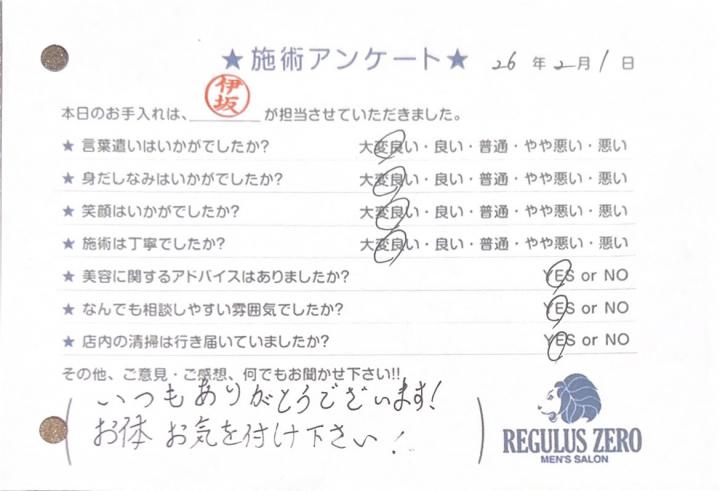 ★施術アンケート★ 26年2月1日
本日のお手入れは、伊坂が担当させていただきました。
★ 言葉遣いはいかがでしたか? 大変良い・良い・普通・やや悪い・悪い
★ 身だしなみはいかがでしたか? 大変良い・良い・普通・やや悪い・悪い
★ 笑顔はいかがでしたか? 大変良い・良い・普通・やや悪い・悪い
★ 施術は丁寧でしたか? 大変良い・良い・普通・やや悪い・悪い
★ 美容に関するアドバイスはありましたか? YES or NO
★ なんでも相談しやすい雰囲気でしたか? YES or NO
★ 店内の清掃は行き届いていましたか? YES or NO
その他、ご意見・ご感想、何でもお聞かせ下さい!!
いつもありがとうございます!
お体 お気を付け下さい!
REGULUS ZERO
MEN'S SALON